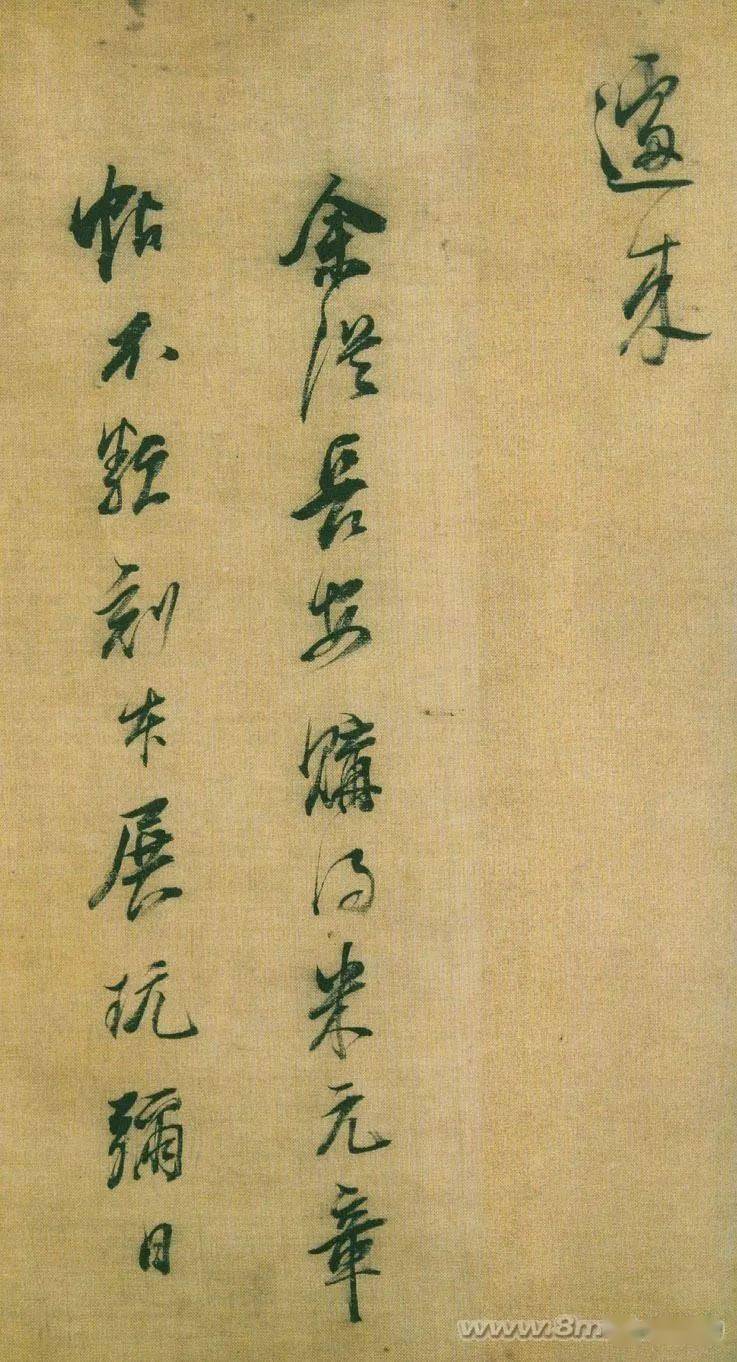 来
余從長安購得米元章
帖不類刻本展玩彌日
www.8m